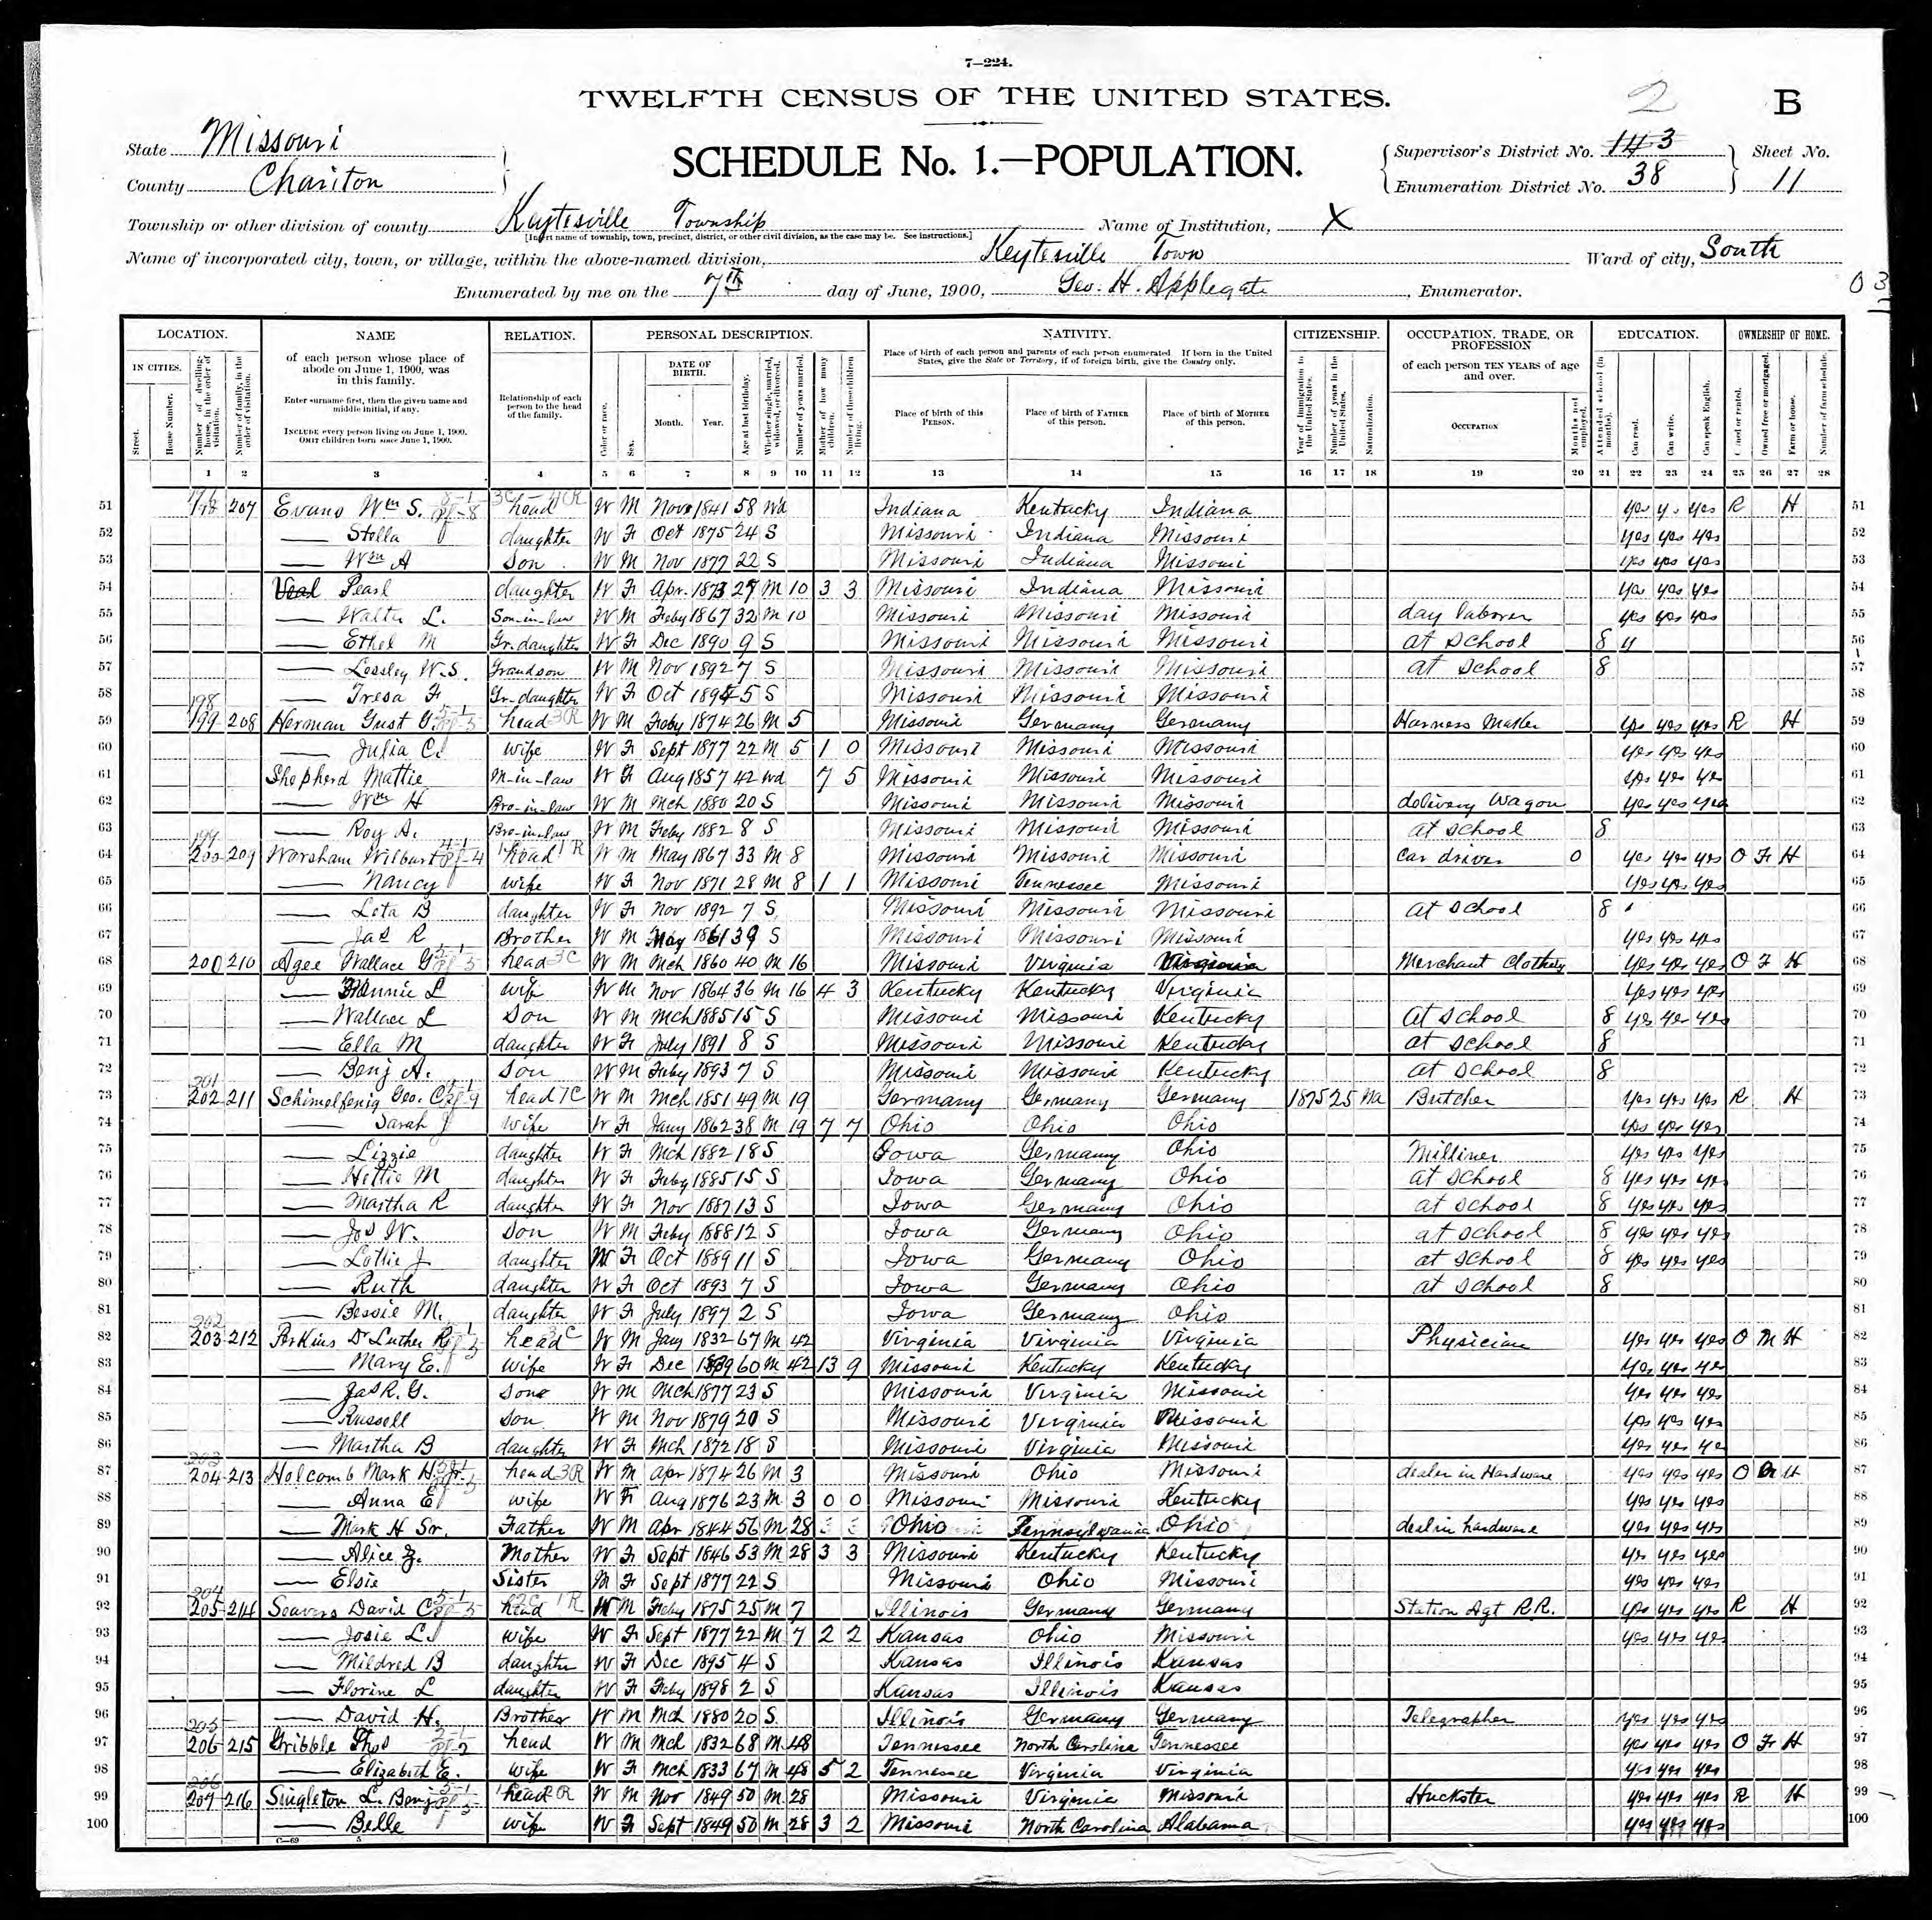 7—224.
TWELFTH CENSUS OF THE UNITED STATES.
2 B
State Missouri
County Chariton
SCHEDULE No. 1.—POPULATION.
Supervisor's District No. 143
Enumeration District No. 38
Sheet No. 11
Township or other division of county Keytesville Township Name of Institution, X
[Insert name of township, town, precinct, district, or other civil division, as the case may be. See instructions.]
Name of incorporated city, town, or village, within the above-named division, Keytesville Town Ward of city, South
Enumerated by me on the 7th day of June, 1900, Geo. H. Applegate, Enumerator.
03
LOCATION. NAME RELATION. PERSONAL DESCRIPTION. NATIVITY. CITIZENSHIP. OCCUPATION, TRADE, OR PROFESSION EDUCATION. OWNERSHIP OF HOME.
IN CITIES. Street. House Number. Number of dwelling-house, in the order of visitation. Number of family, in the order of visitation.
of each person whose place of abode on June 1, 1900, was in this family.
Enter surname first, then the given name and middle initial, if any.
INCLUDE every person living on June 1, 1900. OMIT children born since June 1, 1900.
Relationship of each person to the head of the family.
Color or race. Sex. DATE OF BIRTH. Month. Year. Age at last birthday. Whether single, married, widowed, or divorced. Number of years married. Mother of how many children. Number of these children living.
Place of birth of each person and parents of each person enumerated. If born in the United States, give the State or Territory, if of foreign birth, give the Country only.
Place of birth of this PERSON. Place of birth of FATHER of this person. Place of birth of MOTHER of this person.
Year of immigration to the United States. Number of years in the United States. Naturalization.
of each person TEN YEARS of age and over.
OCCUPATION Months not employed.
Attended school (in months). Can read. Can write. Can speak English.
Owned or rented. Owned free or mortgaged. Farm or house. Number of farm schedule.
1 2 3 4 5 6 7 8 9 10 11 12 13 14 15 16 17 18 19 20 21 22 23 24 25 26 27 28
51 207 Evans Wm S. head W M Nov 1841 58 Wd Indiana Kentucky Indiana yes yes R H 51
52 — Stella daughter W F Oct 1875 24 S Missouri Indiana Missouri yes yes yes 52
53 — Wm A Son W M Nov 1877 22 S Missouri Indiana Missouri yes yes yes 53
54 Veal Pearl daughter W F Apr 1873 27 M 10 3 3 Missouri Indiana Missouri yes yes yes 54
55 — Walter L. Son-in-law W M Feby 1867 32 M 10 Missouri Missouri Missouri day laborer yes yes yes 55
56 — Ethel M Gr. daughter W F Dec 1890 9 S Missouri Missouri Missouri at school 8 56
57 — Lessley W.S. Grandson W M Nov 1892 7 S Missouri Missouri Missouri at school 8 57
58 — Tresa F Gr-daughter W F Oct 1894 5 S Missouri Missouri Missouri 58
59 198 199 208 Herman Gust head W M Feby 1874 26 M 5 Missouri Germany Germany Harness Maker yes yes yes R H 59
60 — Julia C. wife W F Sept 1877 22 M 5 1 0 Missouri Missouri Missouri yes yes yes 60
61 Shepherd Mattie M-in-law W F Aug 1857 42 Wd 7 5 Missouri Missouri Missouri yes yes yes 61
62 — Wm H Bro-in-law W M Mch 1880 20 S Missouri Missouri Missouri delivery wagon yes yes yes 62
63 — Roy A. Bro-in-law W M Feby 1882 8 S Missouri Missouri Missouri at school 8 63
64 199 200 209 Worsham Wilburt head W M May 1867 33 M 8 Missouri Missouri Missouri Car driver 0 yes yes yes O F H 64
65 — Nancy wife W F Nov 1871 28 M 8 1 1 Missouri Tennessee Missouri yes yes yes 65
66 — Leta B daughter W F Nov 1892 7 S Missouri Missouri Missouri at school 8 66
67 — Jas R Brother W M May 1861 39 S Missouri Missouri Missouri yes yes yes 67
68 200 210 Agee Wallace G head W M Mch 1860 40 M 16 Missouri Virginia Virginia Merchant Clothing yes yes yes O F H 68
69 — Fannie L wife W M Nov 1864 36 M 16 4 3 Kentucky Kentucky Virginia yes yes yes 69
70 — Wallace L Son W M Mch 1885 15 S Missouri Missouri Kentucky at school 8 yes yes yes 70
71 — Ella M daughter W F July 1891 8 S Missouri Missouri Kentucky at school 8 71
72 — Benj A. Son W M Feby 1893 7 S Missouri Missouri Kentucky at school 8 72
73 201 202 211 Schimelfenig Geo. C head W M Mch 1851 49 M 19 Germany Germany Germany 1875 25 Na Butcher yes yes yes R H 73
74 — Sarah J wife W F Jany 1862 38 M 19 7 7 Ohio Ohio Ohio yes yes yes 74
75 — Lizzie daughter W F Mch 1882 18 S Iowa Germany Ohio Milliner yes yes yes 75
76 — Hettie M daughter W F Feby 1885 15 S Iowa Germany Ohio at school 8 yes yes yes 76
77 — Martha R daughter W F Nov 1887 13 S Iowa Germany Ohio at school 8 yes yes yes 77
78 — Jos W. Son W M Feby 1888 12 S Iowa Germany Ohio at school 8 yes yes yes 78
79 — Lottie J daughter W F Oct 1889 11 S Iowa Germany Ohio at school 8 yes yes yes 79
80 — Ruth daughter W F Oct 1893 7 S Iowa Germany Ohio at school 8 80
81 — Bessie M. daughter W F July 1897 2 S Iowa Germany Ohio 81
82 202 203 212 Perkins Dr Luther R head W M Jany 1832 67 M 42 Virginia Virginia Virginia Physician yes yes yes O M H 82
83 — Mary E. wife W F Dec 1839 60 M 42 13 9 Missouri Kentucky Kentucky yes yes yes 83
84 — Jas R. G. Son W M Mch 1877 23 S Missouri Virginia Missouri yes yes yes 84
85 — Russell Son W M Nov 1879 20 S Missouri Virginia Missouri yes yes yes 85
86 — Martha B daughter W F Mch 1872 18 S Missouri Virginia Missouri yes yes yes 86
87 203 204 213 Holcomb Mark H. Jr. head W M Apr 1874 26 M 3 Missouri Ohio Missouri dealer in Hardware yes yes yes O H 87
88 — Anna E wife W F Aug 1876 23 M 3 0 0 Missouri Missouri Kentucky yes yes yes 88
89 — Mark H Sr. Father W M Apr 1844 56 M 28 Ohio Pennsylvania Ohio deal in hardware yes yes yes 89
90 — Alice Z. Mother W F Sept 1846 53 M 28 3 3 Missouri Kentucky Kentucky yes yes yes 90
91 — Elsie Sister W F Sept 1877 22 S Missouri Ohio Missouri yes yes yes 91
92 204 205 214 Seavers David C head W M Feby 1875 25 M 7 Illinois Germany Germany Station Agt R.R. yes yes yes R H 92
93 — Josie L. wife W F Sept 1877 22 M 7 2 2 Kansas Ohio Missouri yes yes yes 93
94 — Mildred B daughter W F Dec 1895 4 S Kansas Illinois Kansas 94
95 — Florine L daughter W F Feby 1898 2 S Kansas Illinois Kansas 95
96 — David H. Brother W M Mch 1880 20 S Illinois Germany Germany Telegrapher yes yes yes 96
97 205 206 215 Gribble Thos head W M Mch 1832 68 M 48 Tennessee North Carolina Tennessee yes yes yes O F H 97
98 — Elizabeth E. wife W F Mch 1833 67 M 48 5 2 Tennessee Virginia Virginia yes yes yes 98
99 206 207 216 Singleton L. Benj head W M Nov 1849 50 M 28 Missouri Virginia Missouri Huckster yes yes yes R H 99
100 — Belle wife W F Sept 1849 50 M 28 3 2 Missouri North Carolina Alabama yes yes yes 100
C—69 5